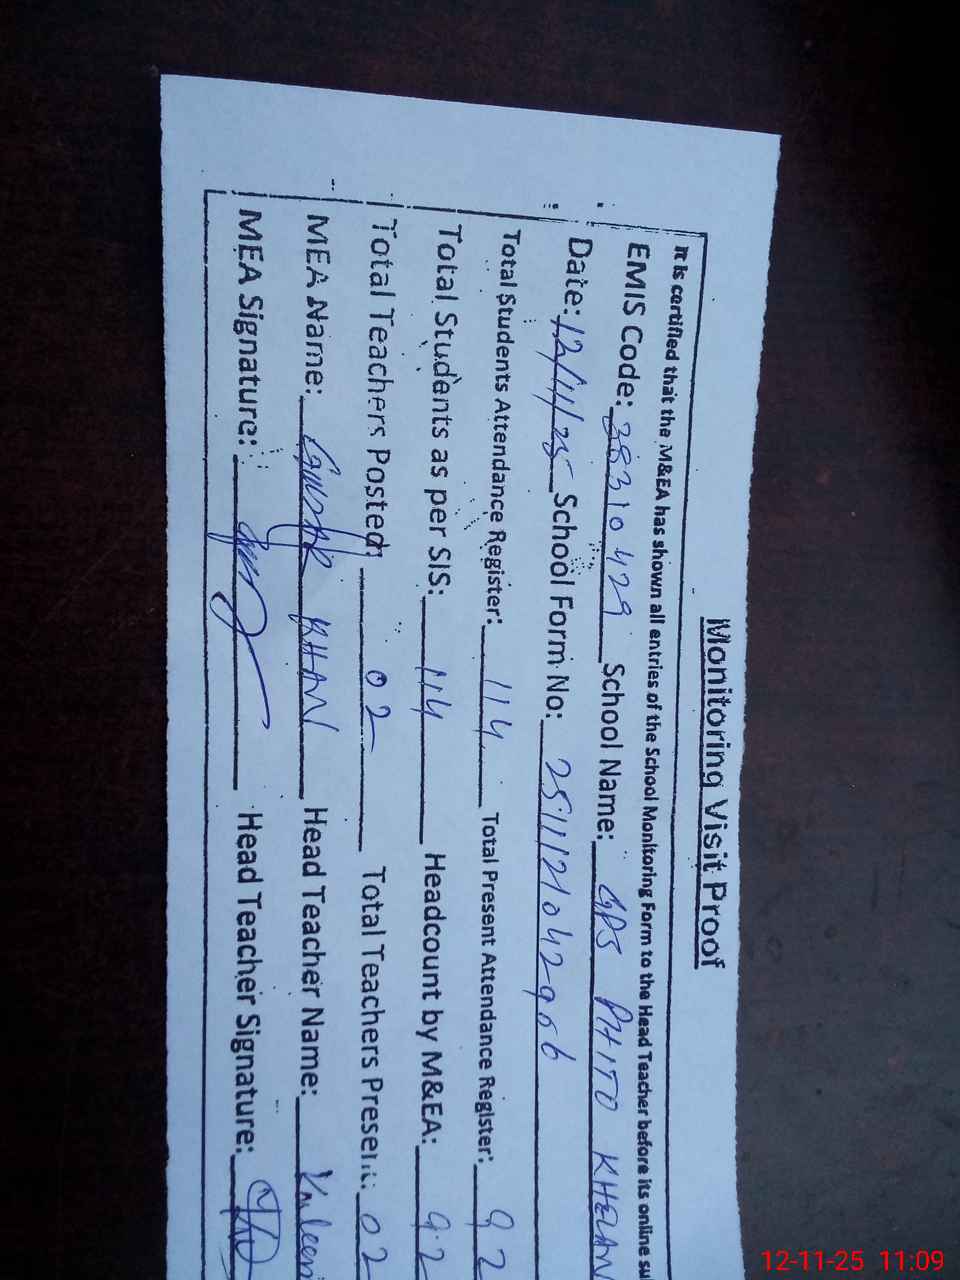 Monitoring Visit Proof
It is certified that the M&EA has shown all entries of the School Monitoring Form to the Head Teacher before its online su
EMIS Code: 38310429 School Name: GPS PHITO KHELAN
Date: 12/11/25 School Form No: 2511121042906
Total Students Attendance Register: 114 Total Present Attendance Register: 92
Total Students as per SIS: 114 Headcount by M&EA: 92
Total Teachers Posted: 02 Total Teachers Present: 02
MEA Name: KHAN Head Teacher Name:
MEA Signature: Head Teacher Signature:
12-11-25 11:09